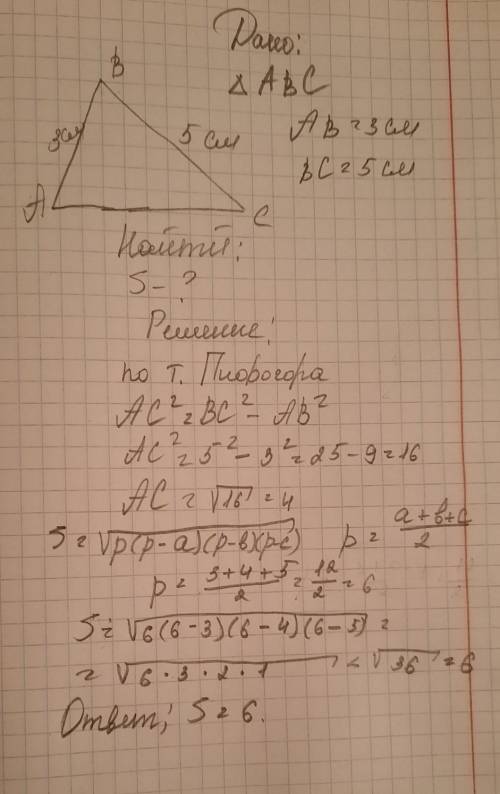 Дано:
B
△ ABC
3см
5 см
AB = 3 см
BC = 5 см
A
C
Найти:
S - ?
Решение:
по т. Пифогора
AC² = BC² - AB²
AC² = 5² - 3² = 25 - 9 = 16
AC = √16 = 4
S = √p(p-a)(p-в)(p-c) p = a+в+c/2
p = 3+4+5/2 = 12/2 = 6
S = √6(6-3)(6-4)(6-5) =
= √6·3·2·1 = √36 = 6
Ответ; S = 6.